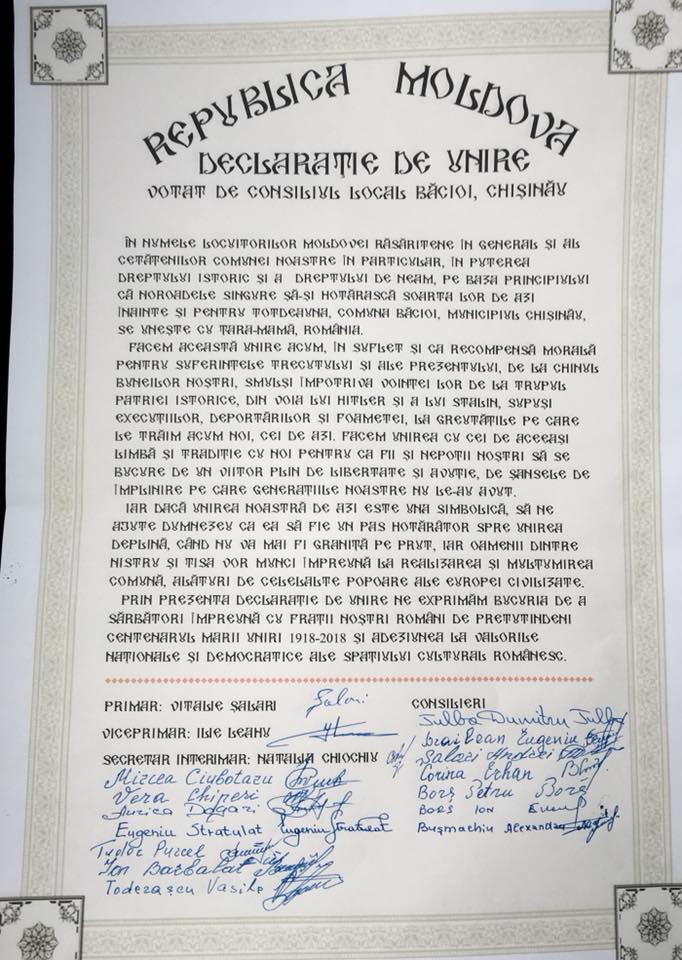 REPUBLICA MOLDOVA
DECLARAȚIE DE UNIRE
VOTAT DE CONSILIUL LOCAL BĂCIOI, CHIȘINĂU
ÎN NUMELE LOCUITORILOR MOLDOVEI RĂSĂRITENE ÎN GENERAL ȘI AL
CETĂȚENILOR COMUNEI NOASTRE ÎN PARTICULAR, ÎN PUTEREA
DREPTULUI ISTORIC ȘI A DREPTULUI DE NEAM, PE BAZA PRINCIPIULUI
CĂ NOROADELE SINGURE SĂ-ȘI HOTĂRASCĂ SOARTA LOR DE AZI
ÎNAINTE ȘI PENTRU TOTDEAUNA, COMUNA BĂCIOI, MUNICIPIUL CHIȘINĂU,
SE UNEȘTE CU ȚARA-MAMĂ, ROMÂNIA.
FACEM ACEASTĂ UNIRE ACUM, ÎN SUFLET ȘI CA RECOMPENSĂ MORALĂ
PENTRU SUFERINȚELE TRECUTULUI ȘI ALE PREZENTULUI, DE LA CHINUL
BUNEILOR NOȘTRI, SMULȘI ÎMPOTRIVA VOINȚEI LOR DE LA TRUPUL
PATRIEI ISTORICE, DIN VOIA LUI HITLER ȘI A LUI STALIN, SUPUȘI
EXECUȚIILOR, DEPORTĂRILOR ȘI FOAMETEI, LA GREUTĂȚILE PE CARE
LE TRĂIM ACUM NOI, CEI DE AZI. FACEM UNIREA CU CEI DE ACEEAȘI
LIMBĂ ȘI TRADIȚIE CU NOI PENTRU CA FII ȘI NEPOȚII NOȘTRI SĂ SE
BUCURE DE UN VIITOR PLIN DE LIBERTATE ȘI AVUȚIE, DE ȘANSELE DE
ÎMPLINIRE PE CARE GENERAȚIILE NOASTRE NU LE-AU AVUT.
IAR DACĂ UNIREA NOASTRĂ DE AZI ESTE UNA SIMBOLICĂ, SĂ NE
AJUTE DUMNEZEU CA EA SĂ FIE UN PAS HOTĂRÂTOR SPRE UNIREA
DEPLINĂ, CÂND NU VA MAI FI GRANIȚĂ PE PRUT, IAR OAMENII DINTRE
NISTRU ȘI TISA VOR MUNCI ÎMPREUNĂ LA REALIZAREA ȘI MULȚUMIREA
COMUNĂ, ALĂTURI DE CELELALTE POPOARE ALE EUROPEI CIVILIZATE.
PRIN PREZENTA DECLARAȚIE DE UNIRE NE EXPRIMĂM BUCURIA DE A
SĂRBĂTORI ÎMPREUNĂ CU FRAȚII NOȘTRI ROMÂNI DE PRETUTINDENI
CENTENARUL MARII UNIRI 1918-2018 ȘI ADEZIUNEA LA VALORILE
NAȚIONALE ȘI DEMOCRATICE ALE SPAȚIULUI CULTURAL ROMÂNESC.
PRIMAR: VITALIE ȘALARI Șalari
VICEPRIMAR: ILIE LEAHU
SECRETAR INTERIMAR: NATALIA CHIOCHIU
Mircea Ciubotaru
Vera Chiperi
Aurica Dogari
Eugeniu Stratulat Eugeniu Stratulat
Tudor Purcel
Ion Barbalat
Toderașcu Vasile
CONSILIERI
Julba Dumitru Julba
Eugeniu
Șalari Andrei
Corina Erhan
Borș Petru Borș
BORȘ ION
Bușmachiu Alexandru